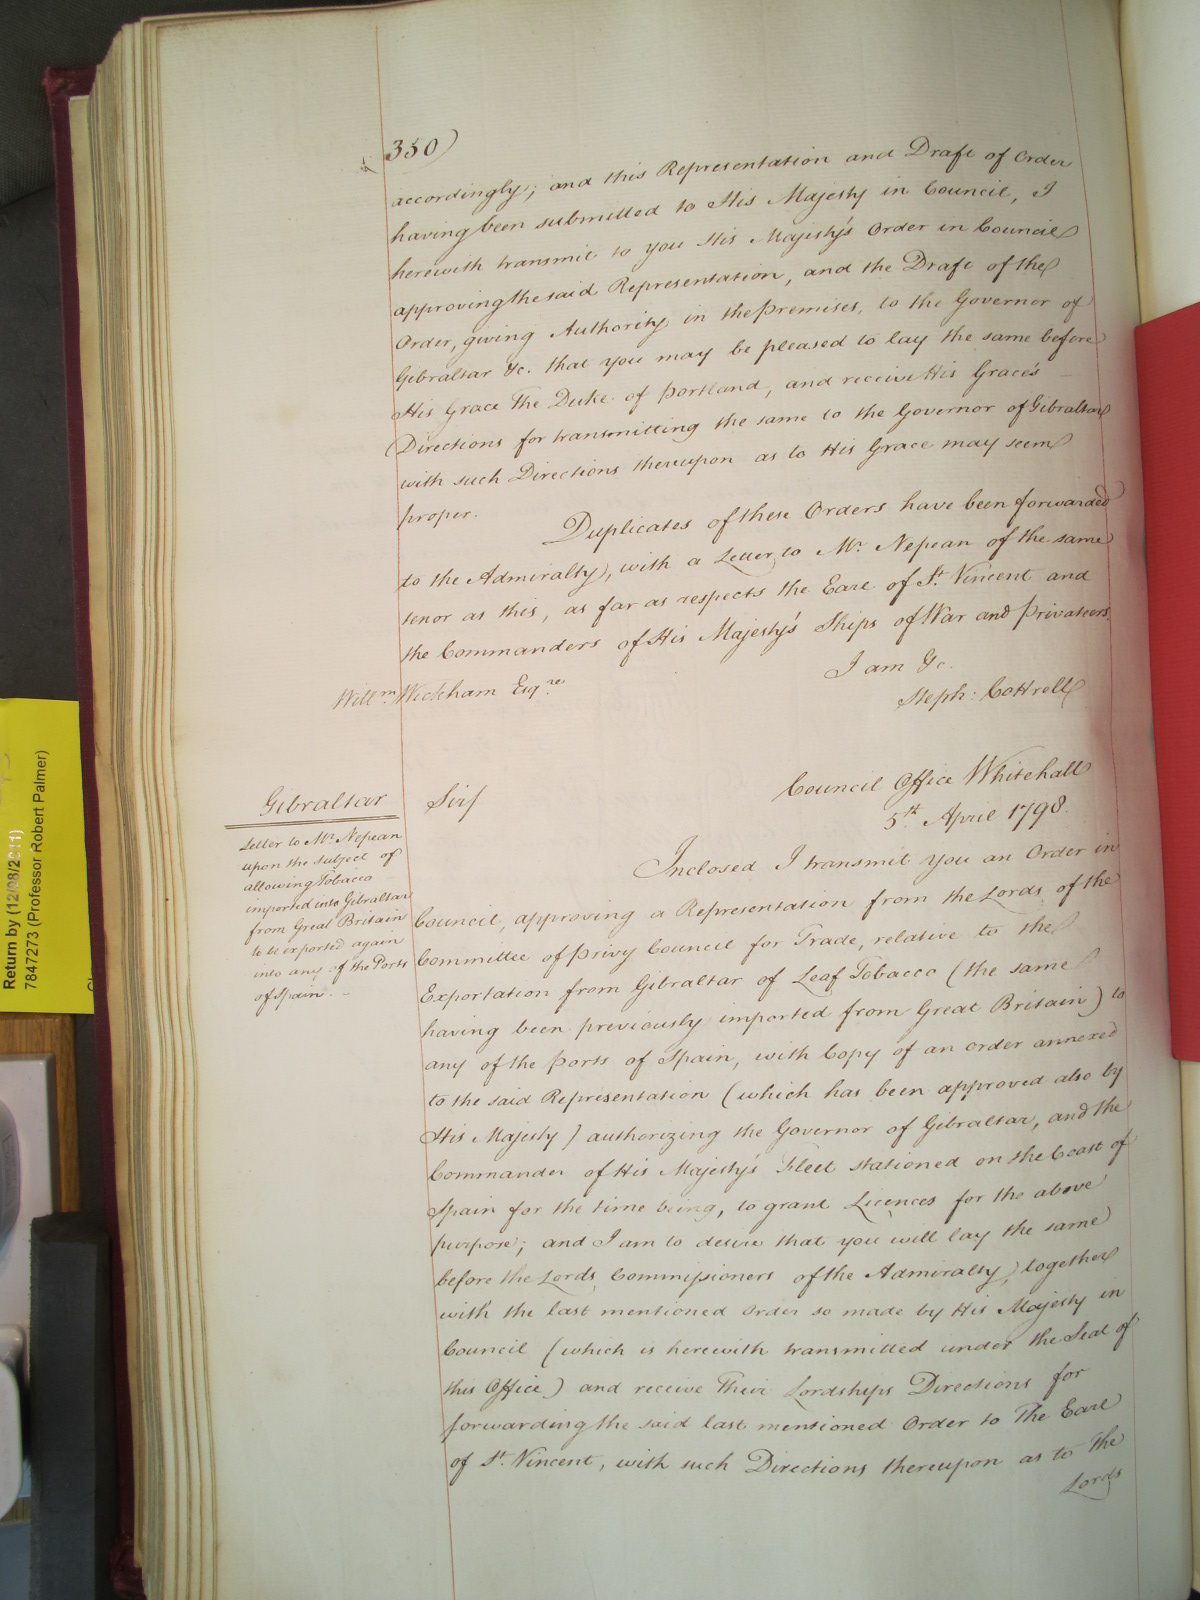 350)
accordingly; and this Representation and Draft of Order
having been submitted to His Majesty in Council, I
herewith transmit to you His Majesty's Order in Council
approving the said Representation, and the Draft of the
Order, giving Authority in the Premises, to the Governor of
Gibraltar &c. that you may be pleased to lay the same before
His Grace The Duke of Portland, and receive His Grace's
Directions for transmitting the same to the Governor of Gibraltar
with such Directions thereupon as to His Grace may seem
proper.
Duplicates of these Orders have been forwarded
to the Admiralty, with a Letter to Mr. Nepean of the same
tenor as this, as far as respects the Earl of St. Vincent and
the Commanders of His Majesty's Ships of War and Privateers.
I am &c.
Steph: Cottrell
Willm. Wickham Esqre.
Gibraltar
Letter to Mr. Nepean
upon the subject of
allowing Tobacco
imported into Gibraltar
from Great Britain
to be exported again
into any of the Ports
of Spain.
Council Office Whitehall
5th. April 1798.
Sir/
Inclosed I transmit you an Order in
Council, approving a Representation from the Lords of the
Committee of Privy Council for Trade, relative to the
Exportation from Gibraltar of Leaf Tobacco (the same
having been previously imported from Great Britain) to
any of the Ports of Spain, with Copy of an order annexed
to the said Representation (which has been approved also by
His Majesty) authorizing the Governor of Gibraltar, and the
Commander of His Majesty's Fleet stationed on the Coast of
Spain for the time being, to grant Licences for the above
purpose; and I am to desire that you will lay the same
before the Lords Commissioners of the Admiralty, together
with the last mentioned Order so made by His Majesty in
Council (which is herewith transmitted under the Seal of
this Office) and receive Their Lordships Directions for
forwarding the said last mentioned Order to The Earl
of St. Vincent, with such Directions thereupon as to The
Lords
Return by (12/08/2011)
7847273 (Professor Robert Palmer)